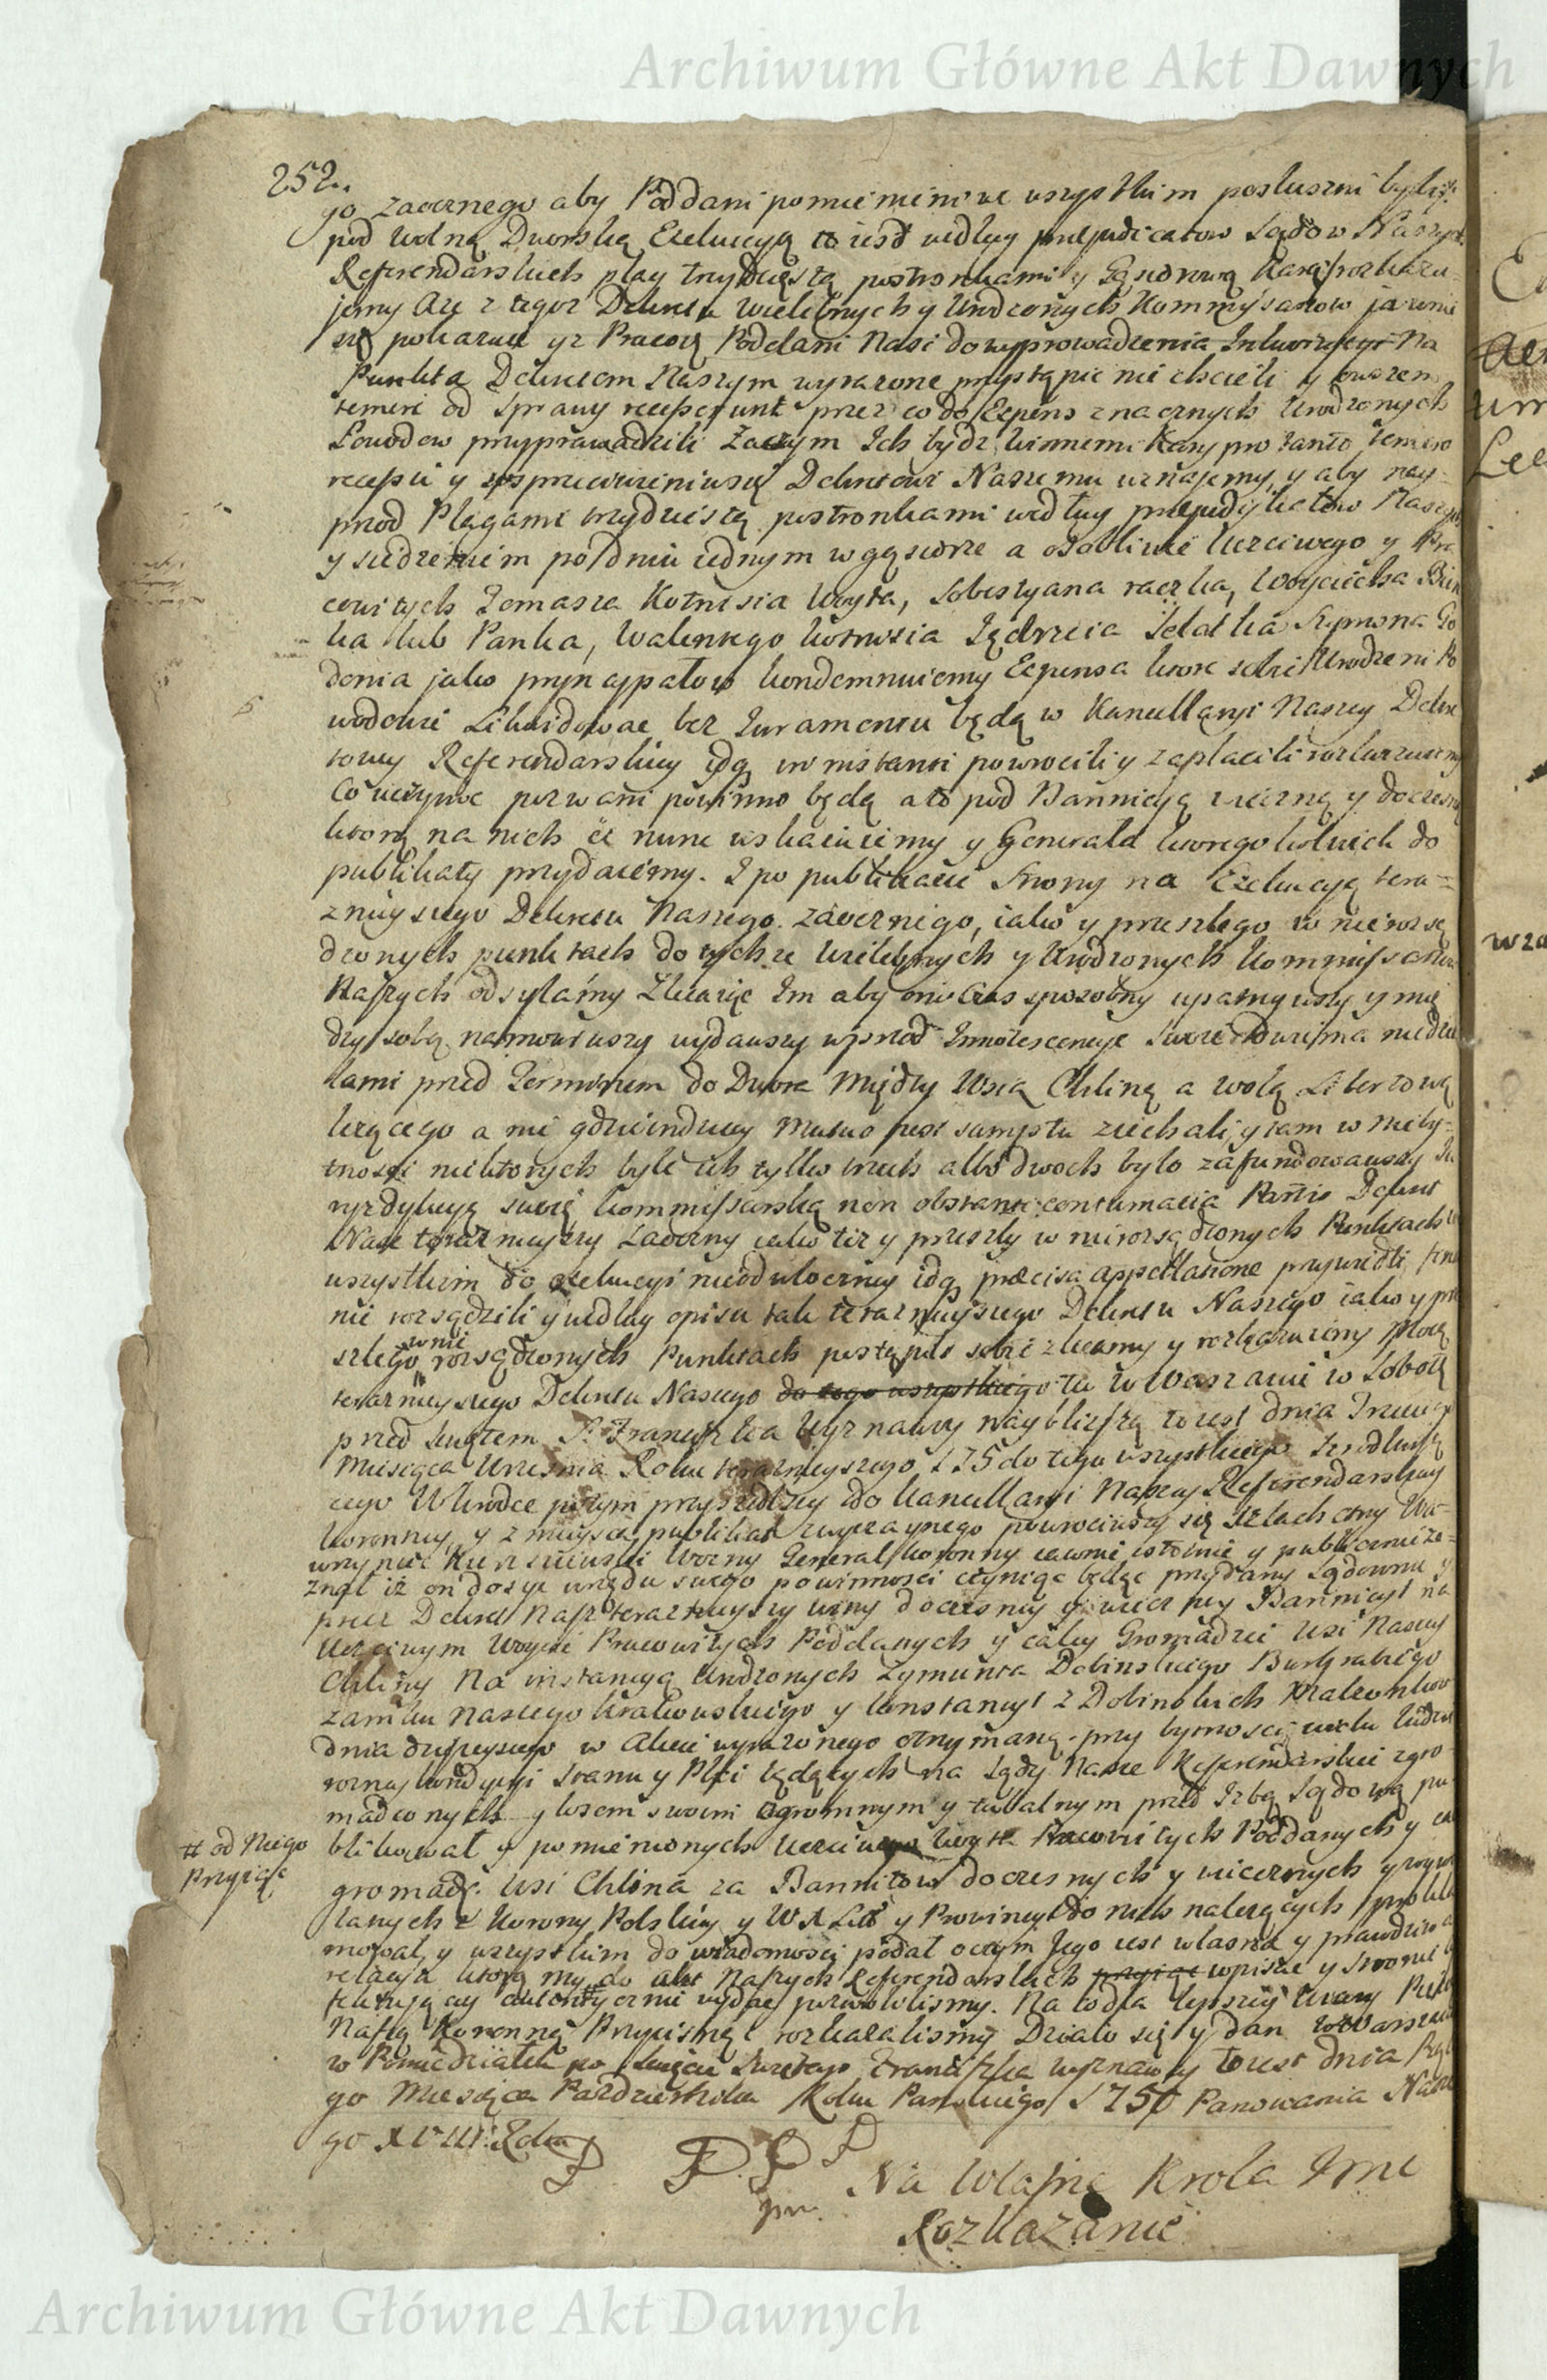 Archiwum Główne Akt Dawnych
252.
go zaocznego aby Poddani pomienieni we wszystkim posłuszni byli
pod wolną Dworską Exekucyą to iest według prejudicatow Sądow Naszych
Referendarskich plag trzydziestą postronkami y Gąsiorową karą rozkazu-
jemy Ale z tegoż Dekretu Wielebnych y Urodzonych Kommissarzow jawnie
się pokazuie yż Pracow. Poddani Nasi do wyprowadzenia Na
Punkta Dekretem Naszym wyrażone przystąpic nie chcieli y owszem
temere od Sprawy recesserunt przez co do Expens znacznych Urodzonych
Powodow przyprawadzili Zaczym Ich bydz winnemi Kary pro tanto temero
recessu y sprzeciwieniu się Dekretowi Naszemu uznajemy, y aby nay-
przod Plagami trzydziestą postronkami według prejudykatow Naszych
y siedzeniem po dniu iednym w gąsiorze a osobliwie Uczciwego y Pra
cowitych Tomasza Kotnisia Woyta, Sobestyana raczka, Woyciecha
ka lub Panka, Walentego Kotnisia Jędrzeia Szymona Go
denia jako pryncypałow kondemnuiemy Expensa ktore sobie Urodzeni Po
wodowie Likwidowac bez Juramentu będą w Kancellaryi Naszey Dekre
towey Referendarskiey idq in instanti powrocili y zapłacili rozkazuiemy
Co uczynic pozwani powinno będą a to pod Bannicyą wieczną y doczesną
ktorą na nich ex nunc wskazuiemy y Generała ktoregokolwiek do
publikaty przydaiemy. I po publikacie Strony na Exekucyą tera-
znieyszego Dekretu Naszego zaocznego, iako y przeszłego w nierozsą
dzonych punktach do tychże Wielebnych y Urodzonych Kommissarzow
Naszych odsyłamy Zlecaiąc Im aby oni Czas sposobny upatrzywszy y mię
dzy sobą namowiwszy wydawszy wprzod Innotescencye Swoie dwiema niedzie
lami przed Terminem do Dwora Między Wsią Chliną a Wolą Libertową
leżącego a nie gdzieindziey mutuo post sumptu ziechali y tam w nieby-
tności niektorych byle ich tylko trzech albo dwoch było zafundowawszy Ju
ryzdykcyą swoię kommissarską non obstante contumacia Partis Dekret
Nasz teraznieyszy Zaoczny iako też y przeszły w nierozsądzonych Punktach we
wszystkim do exekucyi nieodwłoczney idq præcisa appellatione przywiedli fina
nie rozsądzili y według opisu tak teraznieyszego Dekretu Naszego iako y prze
szłego w nie rozsądzonych Punktach postąpili sobie zlecamy y rozkazuiemy Mocą
teraznieyszego Dekretu Naszego do tego wszystkiego tu w Warszawie w Sobotę
przed Swiętem S. Franciszka Wyznawcy naybliższą to iest dnia Trzeciego
Miesiąca Roku teraznieyszego 175 do tego wszystkiego
cego Wkrodce potym przyszedłszy do Kancellaryi Naszey Referendarskiey
Koronney, y z mieysca publikat zwyczaynego powrociwszy się Szlachetny Wa-
wrzyniec Woźny Generał Koronny iawnie istotnie y publicznie ze-
znał iż on dosyc urzędu swego powinnosci czyniąc będąc przydany Sądownie y
przez Dekret Nasz teraznieyszy winy doczesney y wieczney Bannicyi na
Uczciwym Woycie Pracowitych Poddanych y całey Gromadzie wsi Naszey
Chliny Na instancyą Urodzonych Zymunta Dobinskiego Burgrabiego
zamku Naszego Krakowskiego y Konstancyi z Dobinskich Małzonkow
dnia dzisieyszego w Akcie wyrażonego otrzymaną. przy bytnosci wielu ludzi
rozney kondycyi Stanu y Płci będących na Sądy Nasze Referendarskie zgro-
madzonych głosem swoim ogromnym y tubalnym przed Izbą Sądową pu
# od Niego
Przyiąć
blikował y pomienionych Uczciwego Woyta Pracowitych Poddanych y całą
gromadę wsi Chlina za Bannitow doczesnych y wiecznych y wywo
łanych z Korony Polskiey y W X Litt y Prowincyi do nich należących prokla
mował, y wszystkim do wiadomosci podał oczym Jego iest własna y prawdziwa
relacya ktorą my do Akt Naszych Referendarskich przyiąc wpisać y Stronie
autentycznie wydać pozwolilismy. Na co dla lepszey Wiary
Naszą Koronną Przycisnąć rozkazalismy Działo się y dan w Warszawie
w Poniedziałek po Swięcie Swiętego Franciszka wyznawcy to iest dnia
go Miesiąca Pazdziernika Roku Panskiego 175 Panowania Nasze
go XVIII Roku
Na Własne Krola Jmc
Rozkazanie
Archiwum Główne Akt Dawnych